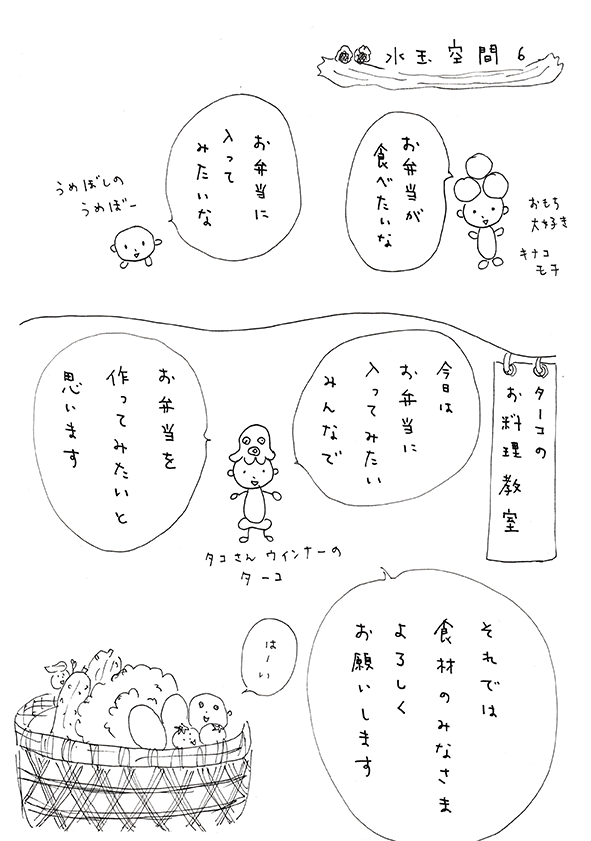 水玉空間 6
お弁当が
食べたいな
おもち
大好き
キナコ
モチ
お弁当に
入って
みたいな
うめぼしの
うめぼー
ターコの
お料理教室
今日は
お弁当に
入ってみたい
みんなで
お弁当を
作ってみたいと
思います
タコさんウインナーの
ターコ
それでは
食材のみなさま
よろしく
お願いします
はーい